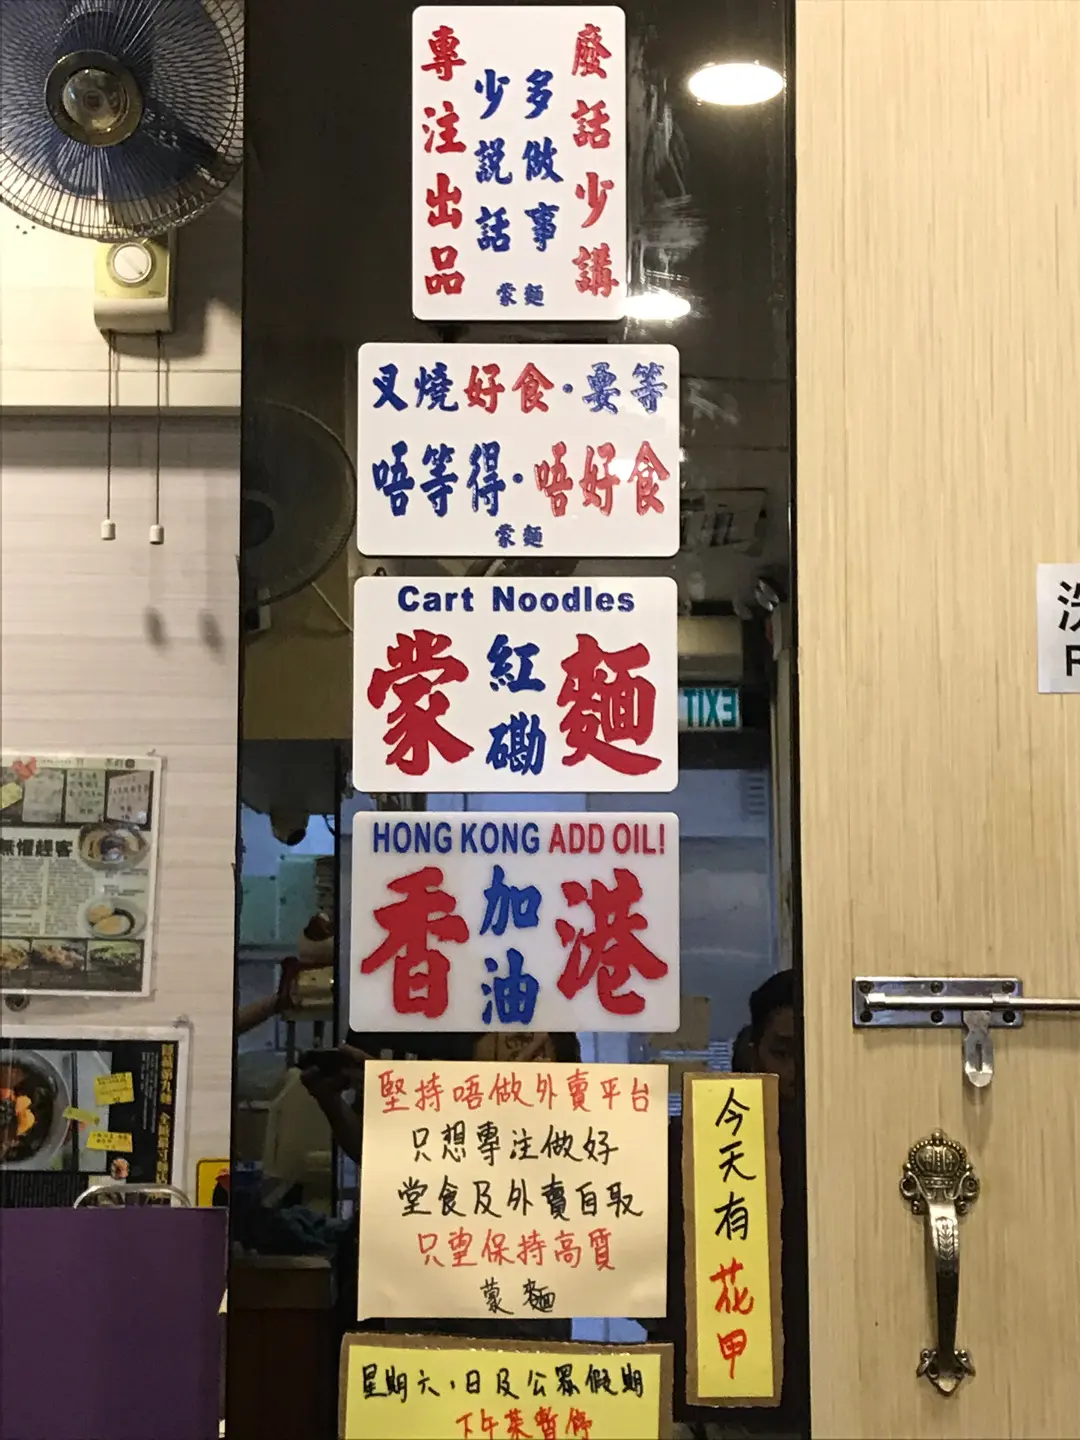 廢話少講
多做事
少説話
專注出品
蒙麵
叉燒好食·要等
唔等得·唔好食
蒙麵
Cart Noodles
蒙紅磡麵
HONG KONG ADD OIL!
香加油港
堅持唔做外賣平台
只想專注做好
堂食及外賣自取
只望保持高質
蒙麵
今天有花甲
星期六、日及公眾假期
下午茶暫停
EXIT
無懼趕客